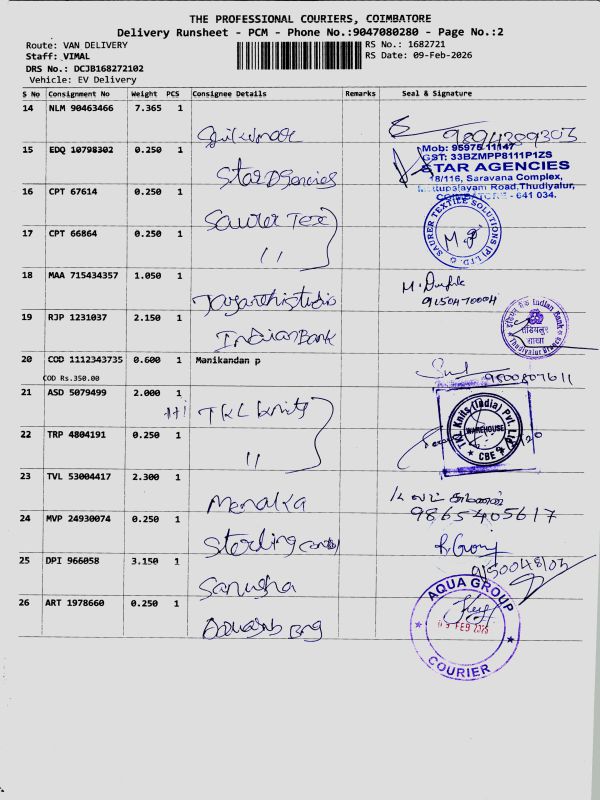 THE PROFESSIONAL COURIERS, COIMBATORE
Delivery Runsheet - PCM - Phone No.:9047080280 - Page No.:2
Route: VAN DELIVERY
Staff: VIMAL
DRS No.: DCJB168272102
Vehicle: EV Delivery
RS No.: 1682721
RS Date: 09-Feb-2026
S No Consignment No Weight PCS Consignee Details Remarks Seal & Signature
14 NLM 90463466 7.365 1
9894389303
15 EDQ 10798302 0.250 1 Star Agencies
Mob: 95975 11147
GST: 33BZMPP8111P1ZS
STAR AGENCIES
18/116, Saravana Complex,
Mettupalayam Road,Thudiyalur,
COIMBATORE - 641 034.
16 CPT 67614 0.250 1 Saurer Tex
SAURER TEXTILE SOLUTIONS (P) LTD.
17 CPT 66864 0.250 1 "
18 MAA 715434357 1.050 1
9150470004
19 RJP 1231037 2.150 1 Indian Bank
इंडियन बैंक Indian Bank
शाखा
Thudiyalur Branch
20 COD 1112343735 0.600 1 Manikandan p
COD Rs.350.00
9800807611
21 ASD 5079499 2.000 1 TKL Knits
TKL Knits (India) Pvt. Ltd.
WAREHOUSE
CBE
22 TRP 4804191 0.250 1 "
23 TVL 53004417 2.300 1 Menaka
9865405617
24 MVP 24930074 0.250 1 Sterling
25 DPI 966058 3.150 1 Sanusha
9150048103
26 ART 1978660 0.250 1
AQUA GROUP
09 FEB 2026
COURIER